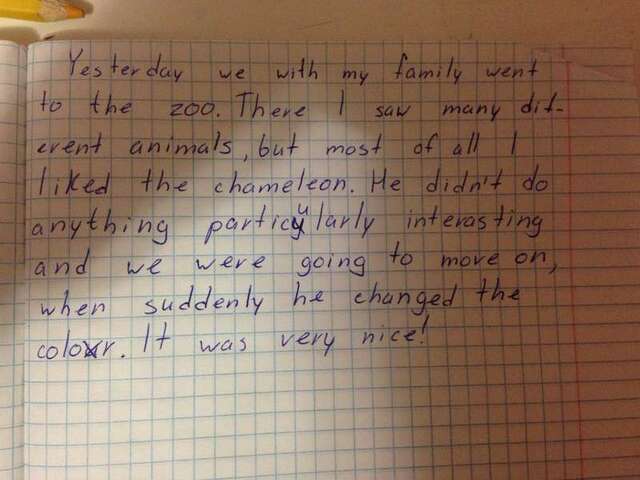 Yesterday we with my family went
to the zoo. There I saw many dif-
erent animals, but most of all I
liked the chameleon. He didn't do
anything particularly interasting
and we were going to move on,
when suddenly he changed the
colour. It was very nice!